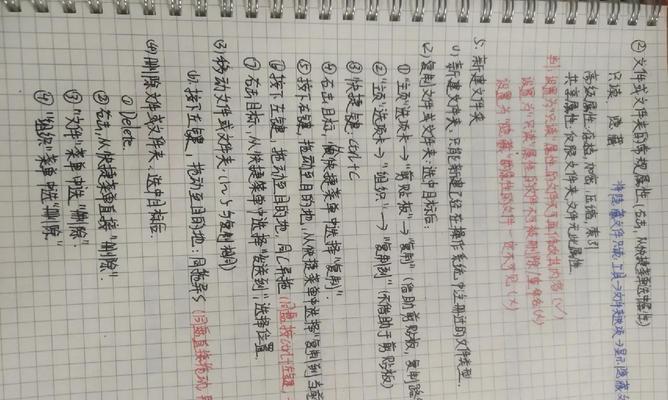 ② 文件或文件夹的常规属性(右击,从快捷菜单选中属性)
只读 隐藏
将隐藏文件只读:工具→文件夹选项→显示隐藏文
高级属性:存档,加密,压缩,索引
共享属性:仅限文件夹,文件无此属性.
设置为"只读"属性的文件不能被删除/重命名(×)
设置为"隐藏"的属性的文件 (×)
5. 新建文件夹
(1) 新建文件夹.只能新建已经在操作系统中注册过的文件类型.
(2) 复制文件或文件夹:选中目标后:
① "主页"选项卡→"剪贴板"→"复制"(借助剪贴板,复制
② "主页"选项卡→"组织"→"复制到"(不借助于剪贴板)
③ 快捷键:Ctrl+C
④ 右击目标,从快捷菜单中选择"复制".
⑤ 按右键,拖动至目的地,从快捷菜单中选择"复制到当前
⑥ 按下左键,拖动至目的地,
⑦ 右击目标,从快捷菜单中选择"发送到"选择位置.
(3) 移动文件或文件夹:(1~5与复制相同)
(6) 按下左键,拖动至目的地:同拖异S (同盘直接拖动,
(4) 删除文件或文件夹:选中目标后:
① Delete.
② 右击,从快捷菜单直接"删除".
③ "文件"菜单中选"删除".
④ "组织"菜单中选"删除".